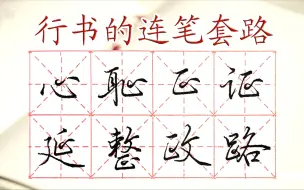 行书的连笔套路
心耻正证
延整政路